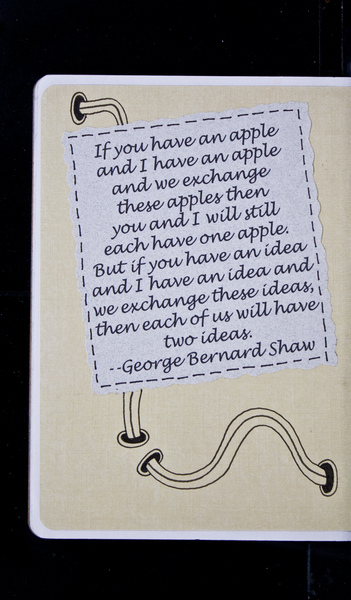 If you have an apple
and I have an apple
and we exchange
these apples then
you and I will still
each have one apple.
But if you have an idea
and I have an idea and
we exchange these ideas,
then each of us will have
two ideas.
--George Bernard Shaw